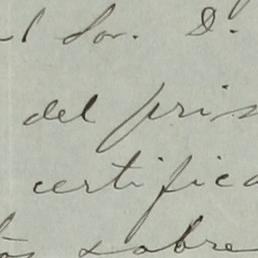 el Sor. D.
del pris
certifica
tos sobre